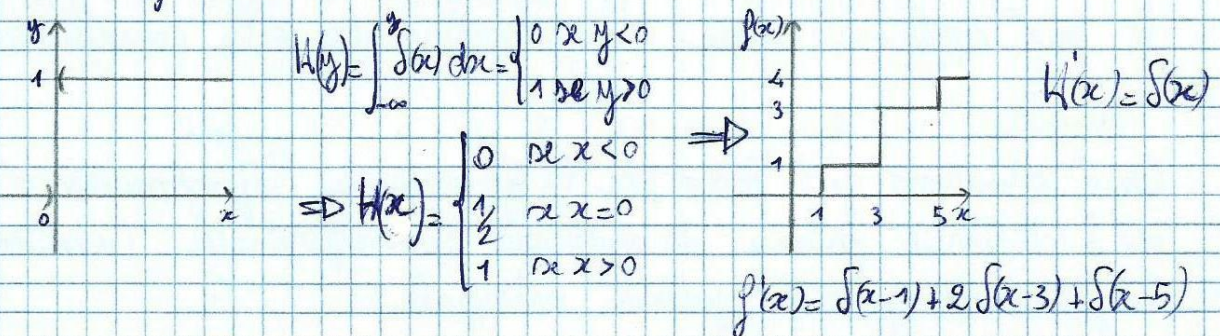 y
1
0
x
H(y)=∫_{-∞}^{y} δ(x) dx = { 0 se y<0
1 se y>0
⇒ H(x)= { 0 se x<0
1/2 se x=0
1 se x>0
⇒
f(x)
4
3
1
1 3 5 x
H'(x)=δ(x)
f'(x)= δ(x-1)+2δ(x-3)+δ(x-5)